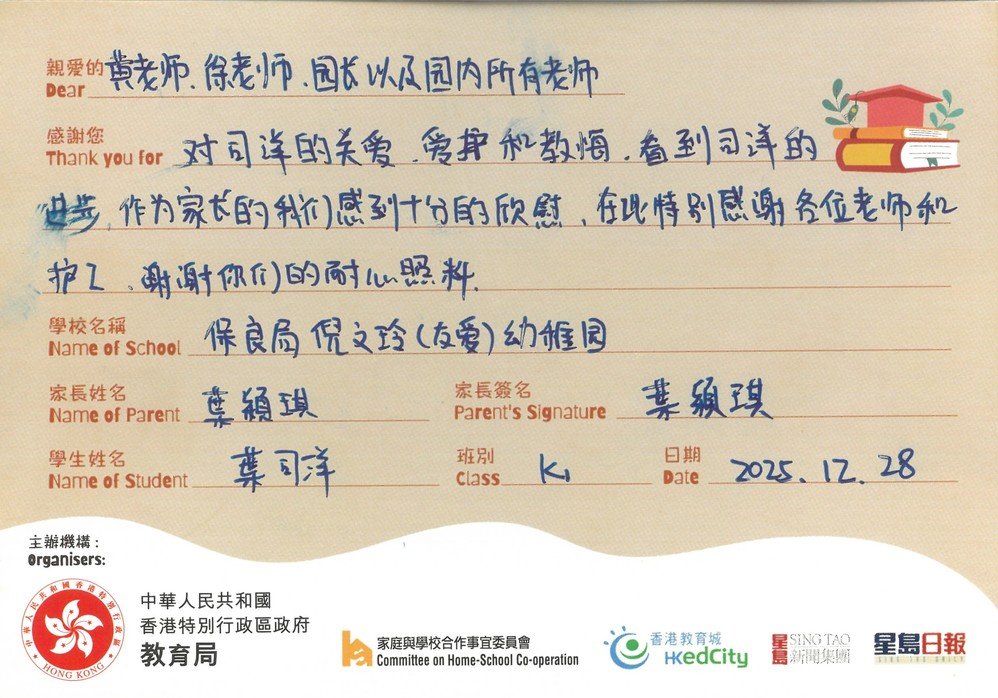 親愛的 黄老师、徐老师、园长以及园内所有老师
Dear
感謝您
Thank you for 对司洋的关爱、爱护和教悔，看到司洋的
进步，作为家长的我们感到十分的欣慰，在此特别感谢各位老师和
护工、谢谢你们的耐心照料。
學校名稱
Name of School 保良局倪文玲(友爱)幼稚园
家長姓名 家長簽名
Name of Parent 葉穎琪 Parent's Signature 葉穎琪
學生姓名 班別 日期
Name of Student 葉司洋 Class K1 Date 2025.12.28
主辦機構：
Organisers:
中華人民共和國香港特別行政區
HONG KONG
中華人民共和國
香港特別行政區政府
教育局
家庭與學校合作事宜委員會
Committee on Home-School Co-operation
香港教育城
HKedCity
星島 SING TAO
新聞集團
星島日報
SING TAO DAILY